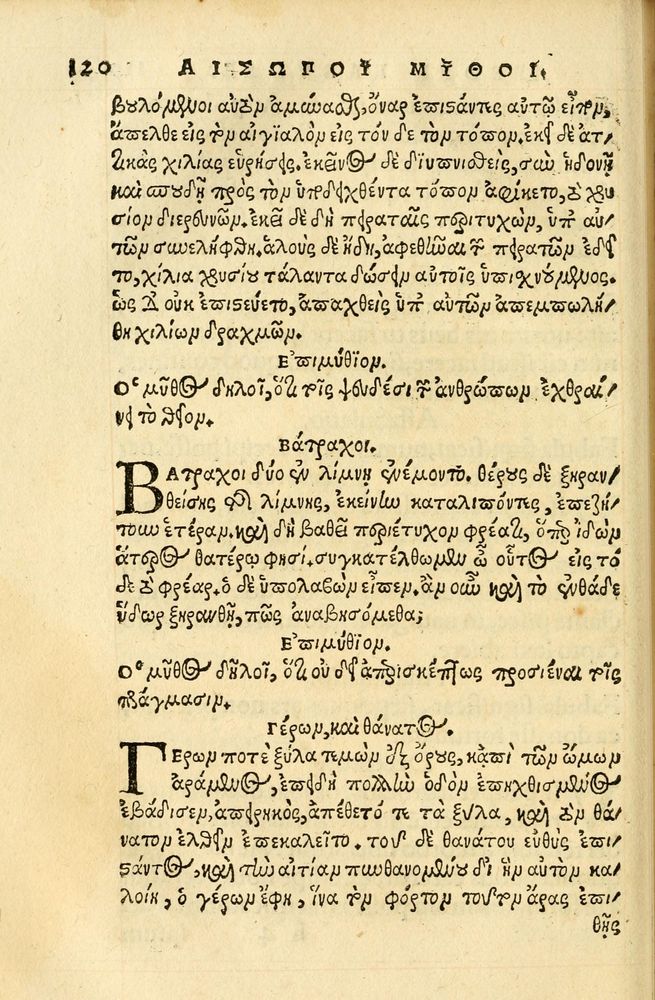 120 ΑΙΣΩΠΟΥ ΜΥΘΟΙ.
βουλόμενοι αὐτὸν ἀμύναϑς, ὄναρ ἐπιστάντες αὐτῷ εἶπον,
ἄπελθε εἰς τὸν αἰγιαλὸν εἰς τόν δε τὸν τόπον. ἐκεῖ δὲ ἀτ/
τικὰς χιλίας εὑρήσεις. ἐκεῖνος δὲ διυπνισθεὶς, σὺν ἡδονῇ
καὶ σπουδῇ πρὸς τὸν ὑποδειχθέντα τόπον ἀφίκετο, τὸ χρυ
σίον διερευνῶν. ἐκεῖ δὲ δὴ πειραταῖς περιτυχὼν, ὑπ' αυ/
τῶν συνελήφθη. ἁλοὺς δὲ ἤδη, ἀφεθῆναι τῶν πειρατῶν ἐδεῖ
το, χίλια χρυσίου τάλαντα δώσειν αὐτοῖς ὑπισχνούμενος.
ὡς δ' οὐκ ἐπιστεύετο, ἀπαχθεὶς ὑπ' αὐτῶν ἀπεμπωλή/
θη χιλίων δραχμῶν.
Ἐπιμύθιον.
Ὁ μῦθος δηλοῖ, ὅτι τοῖς ψευδέσι τῶν ἀνθρώπων ἐχθραί/
νει τὸ θεῖον.
Βάτραχοι.
ΒΑτραχοι δύο ἐν λίμνῃ ἐνέμοντο. θέρους δὲ ξηραν/
θείσης τῆς λίμνης, ἐκείνην καταλιπόντες, ἐπεζή/
τουν ἑτέραν. καὶ δὴ βαθεῖ περιέτυχον φρέατι, ὅπερ ἰδὼν
ἅτερος θατέρῳ φησί. συγκατέλθωμεν ὦ οὗτος εἰς τό
δε τὸ φρέαρ. ὁ δὲ ὑπολαβὼν εἶπεν. ἂν οὖν καὶ τὸ ἐνθάδε
ὕδωρ ξηρανθῇ, πῶς ἀναβησόμεθα;
Ἐπιμύθιον.
Ὁ μῦθος δηλοῖ, ὅτι οὐ δεῖ ἀπερισκέπτως προσιέναι τοῖς
πράγμασιν.
Γέρων, καὶ θάνατος.
ΓΕρων ποτὲ ξύλα τεμὼν ἐξ ὄρους, κἀπὶ τῶν ὤμων
ἀράμενος, ἐπειδὴ πολλὴν ὁδὸν ἐπηχθισμένος
ἐβάδισεν, ἀπειρηκὼς, ἀπέθετό τε τὰ ξύλα, καὶ τὸν θά/
νατον ἐλθεῖν ἐπεκαλεῖτο. τοῦ δὲ θανάτου εὐθὺς ἐπι/
στάντος, καὶ τὴν αἰτίαν πυνθανομένου δι' ἣν αὐτὸν κα/
λοίη, ὁ γέρων ἔφη, ἵνα τὸν φόρτον τοῦτον ἄρας ἐπι/
θῇς